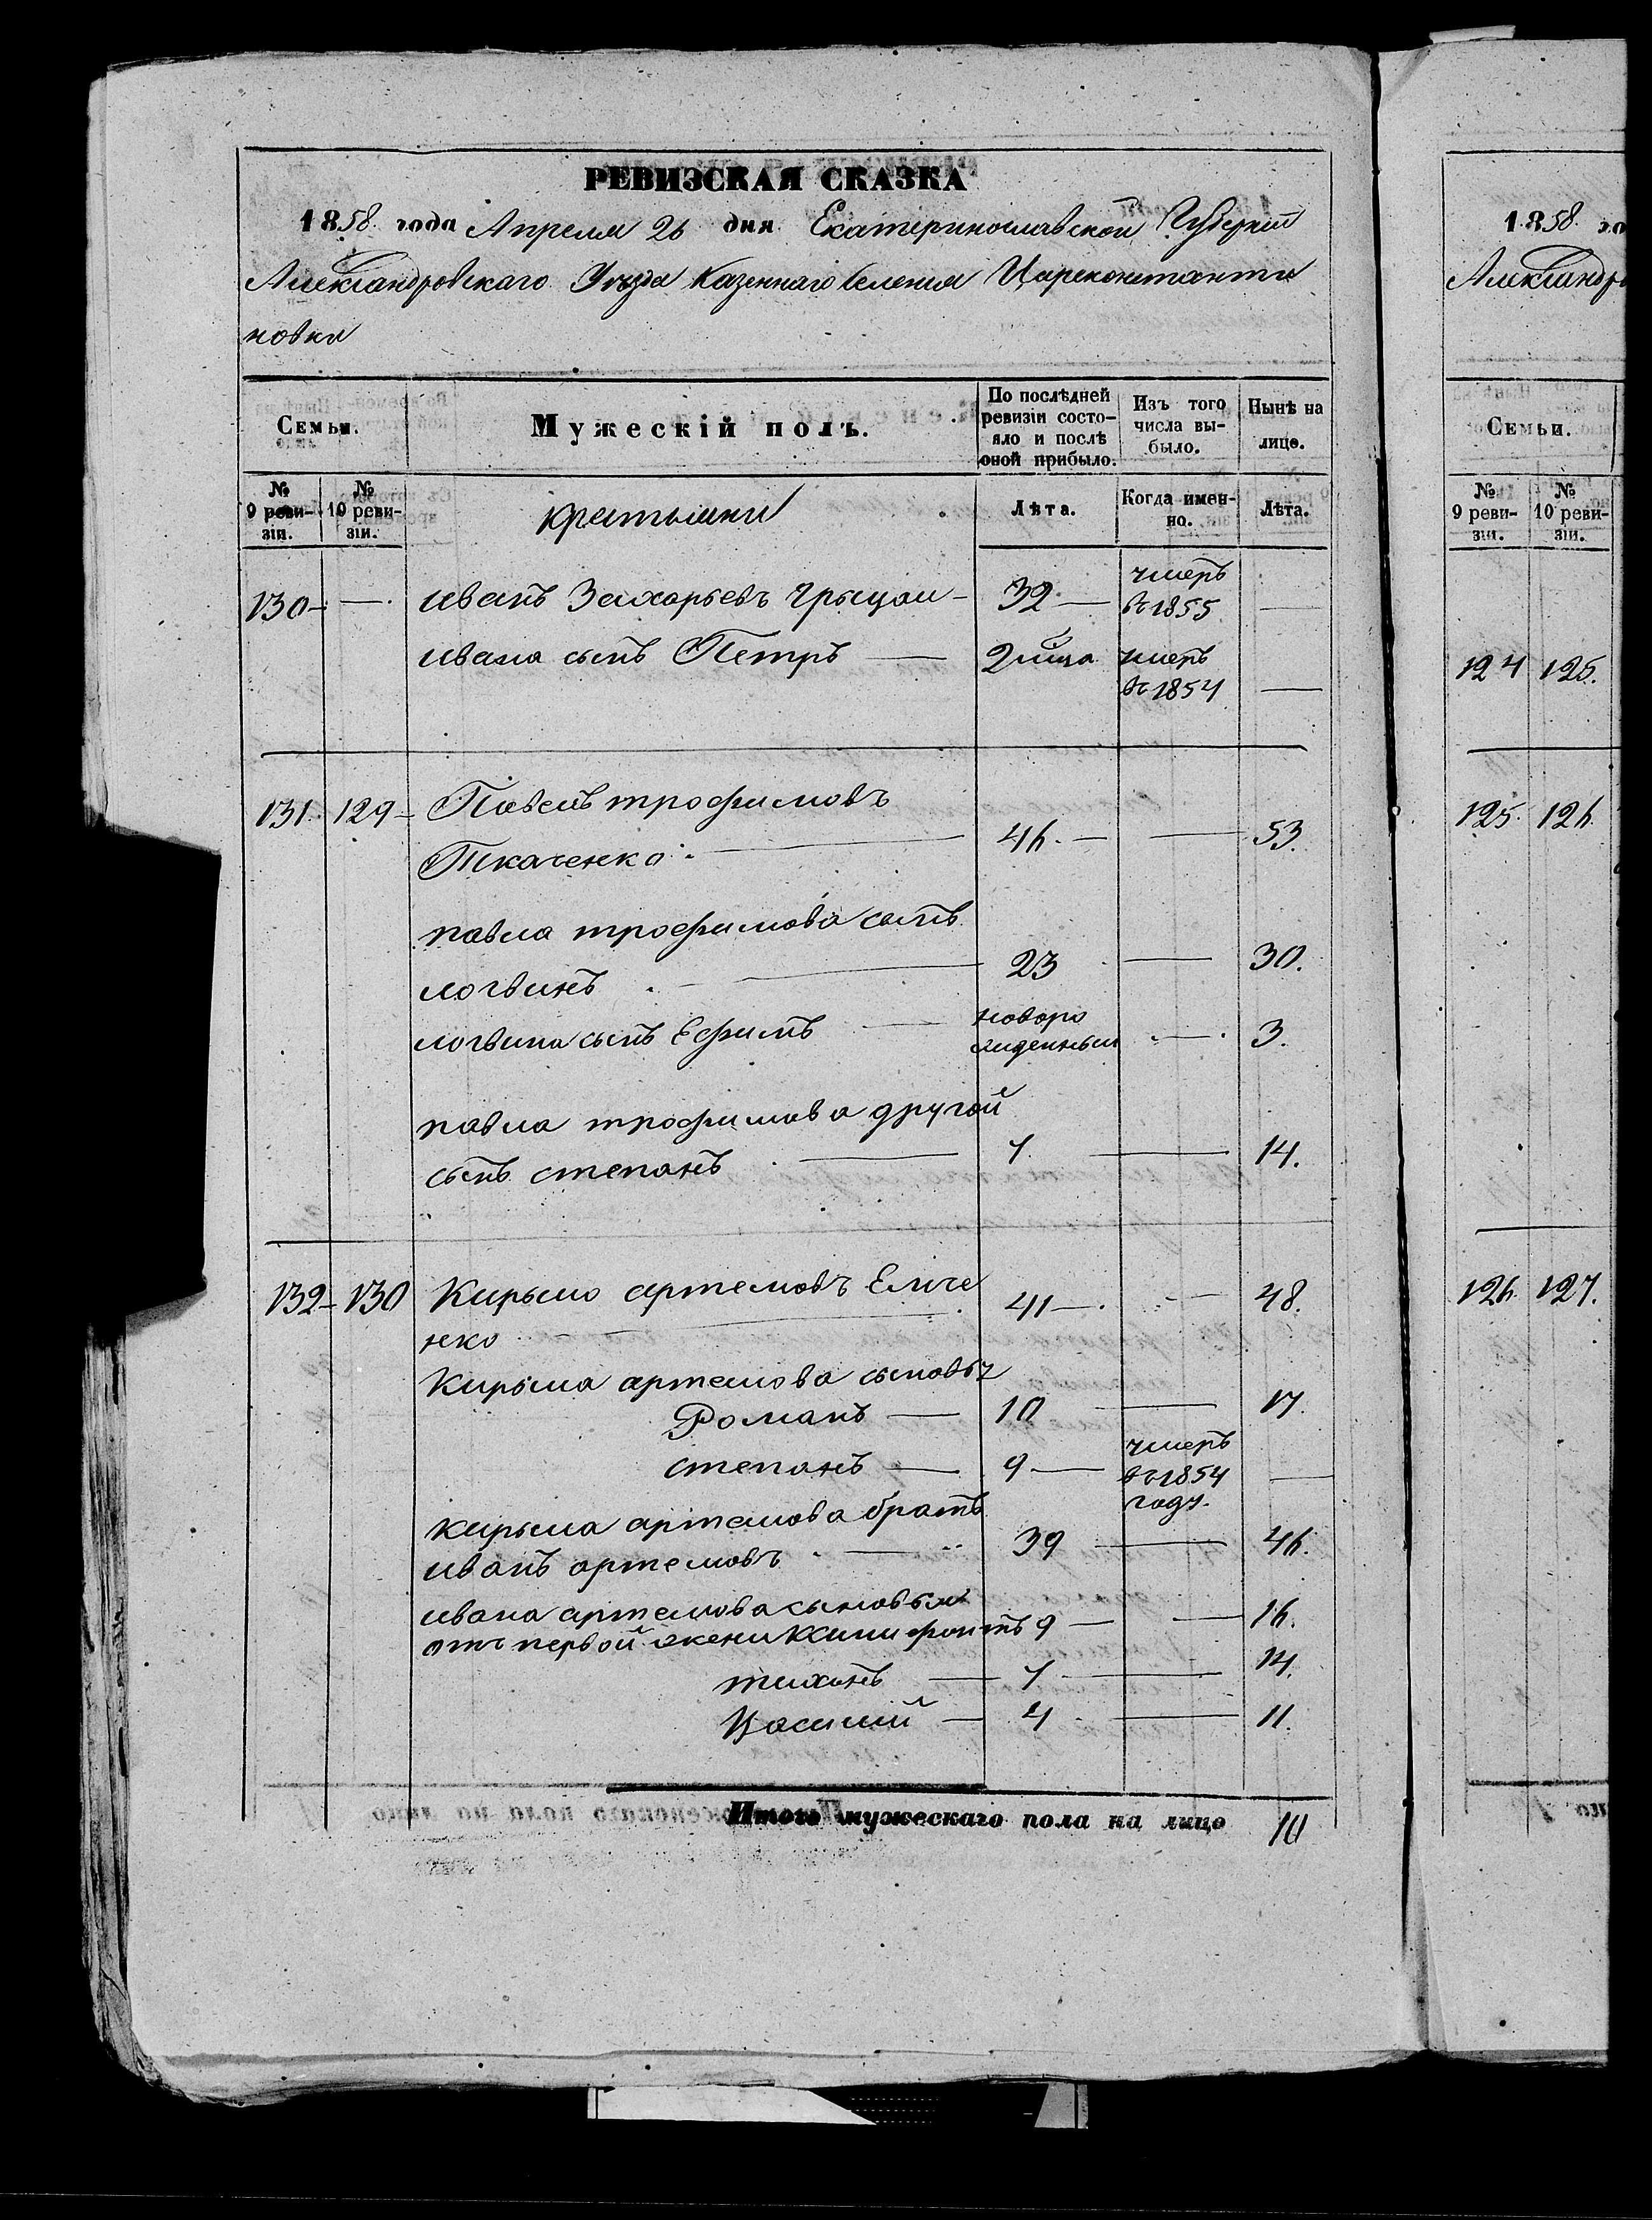 РЕВИЗСКАЯ СКАЗКА
1858. года Апреля 26 дня Екатеринославской Губернии
Александровскаго Уезда Казеннаго Селения Цареконстанти
новки
Семьи. Мужескій полъ. По послѣдней ревизіи состо- яло и послѣ оной прибыло. Изъ того числа вы- было. Нынѣ на лице.
№ 9 реви- зіи. № 10 реви- зіи. Лѣта. Когда имен- но. Лѣта.
130 — иванъ Захарьевъ Грыцаи — 32 — умеръ въ 1855 —
ивана сынъ Петръ — умеръ въ 1854 —
131. 129 — Павелъ трофимовъ
Ткаченко — 46. — — 53.
павла трофимова сынъ
логвинъ — 23 — 30.
логвина сынъ Ефимъ — новоро
жденный — 3.
павла трофимова другой
сынъ степанъ — 7. — 14.
132 — 130 Кирыло артемовъ
нко — 41 — — 48.
Кирыла артемова сыновья
Романъ — 10 — 17.
степанъ — 9 — умеръ въ 1854 году. —
кирыла артемова братъ
иванъ артемовъ — 39 — 46.
ивана артемова сыновья
отъ первой жени 9 — — 16.
тихонъ — 7 — 14.
Василий — 4 — 11.
Итого мужескаго пола на лицо 10
1858. го
Александро
Семьи.
№ 9 реви- зіи. № 10 реви- зіи.
124 125.
125. 126.
126. 127.